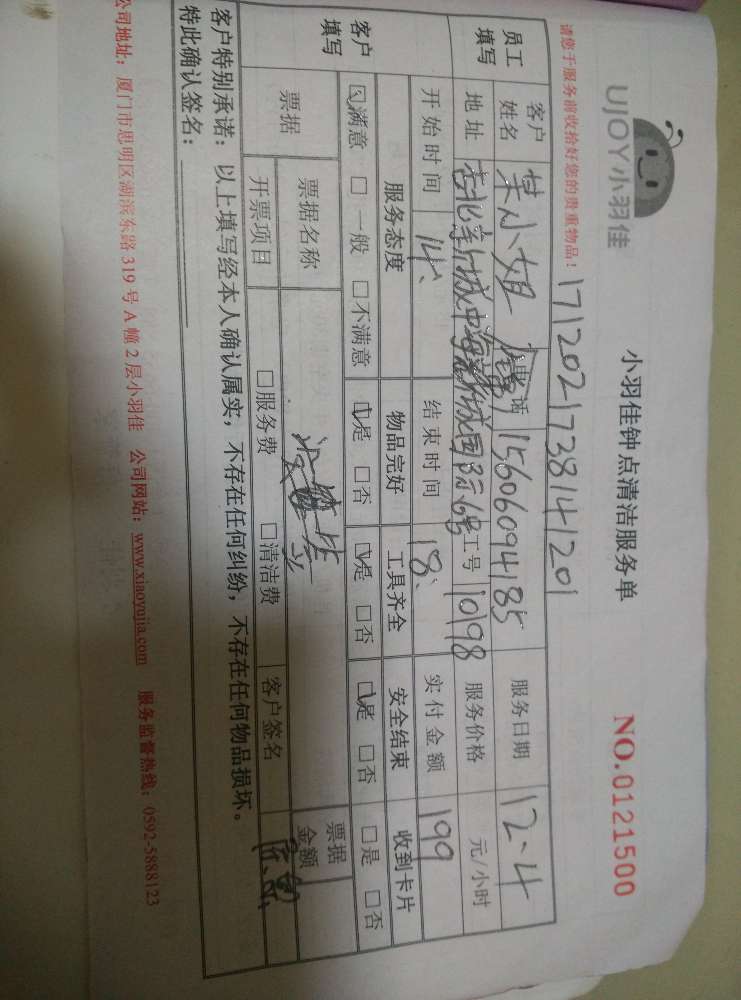 UJOY小羽佳
小羽佳钟点清洁服务单
NO.0121500
请您于服务前收拾好您的贵重物品！
1712021738141201
员工填写
客户姓名 某小姐 电话 15606094185 服务日期 12.4
地址 工号 10198 服务价格 元/小时
开始时间 14、 结束时间 18、 实付金额 199
客户填写
服务态度 物品完好 工具齐全 安全结束 收到卡片
☑满意 □一般 □不满意 ☑是 □否 ☑是 □否 ☑是 □否 □是 □否
票据 票据名称 票据金额
开票项目 □服务费 □清洁费 客户签名
客户特别承诺：以上填写经本人确认属实，不存在任何纠纷，不存在任何物品损坏。
特此确认签名：
公司地址：厦门市思明区湖滨东路319号A幢2层小羽佳 公司网站：www.xiaoyujia.com 服务监督热线：0592-5888123